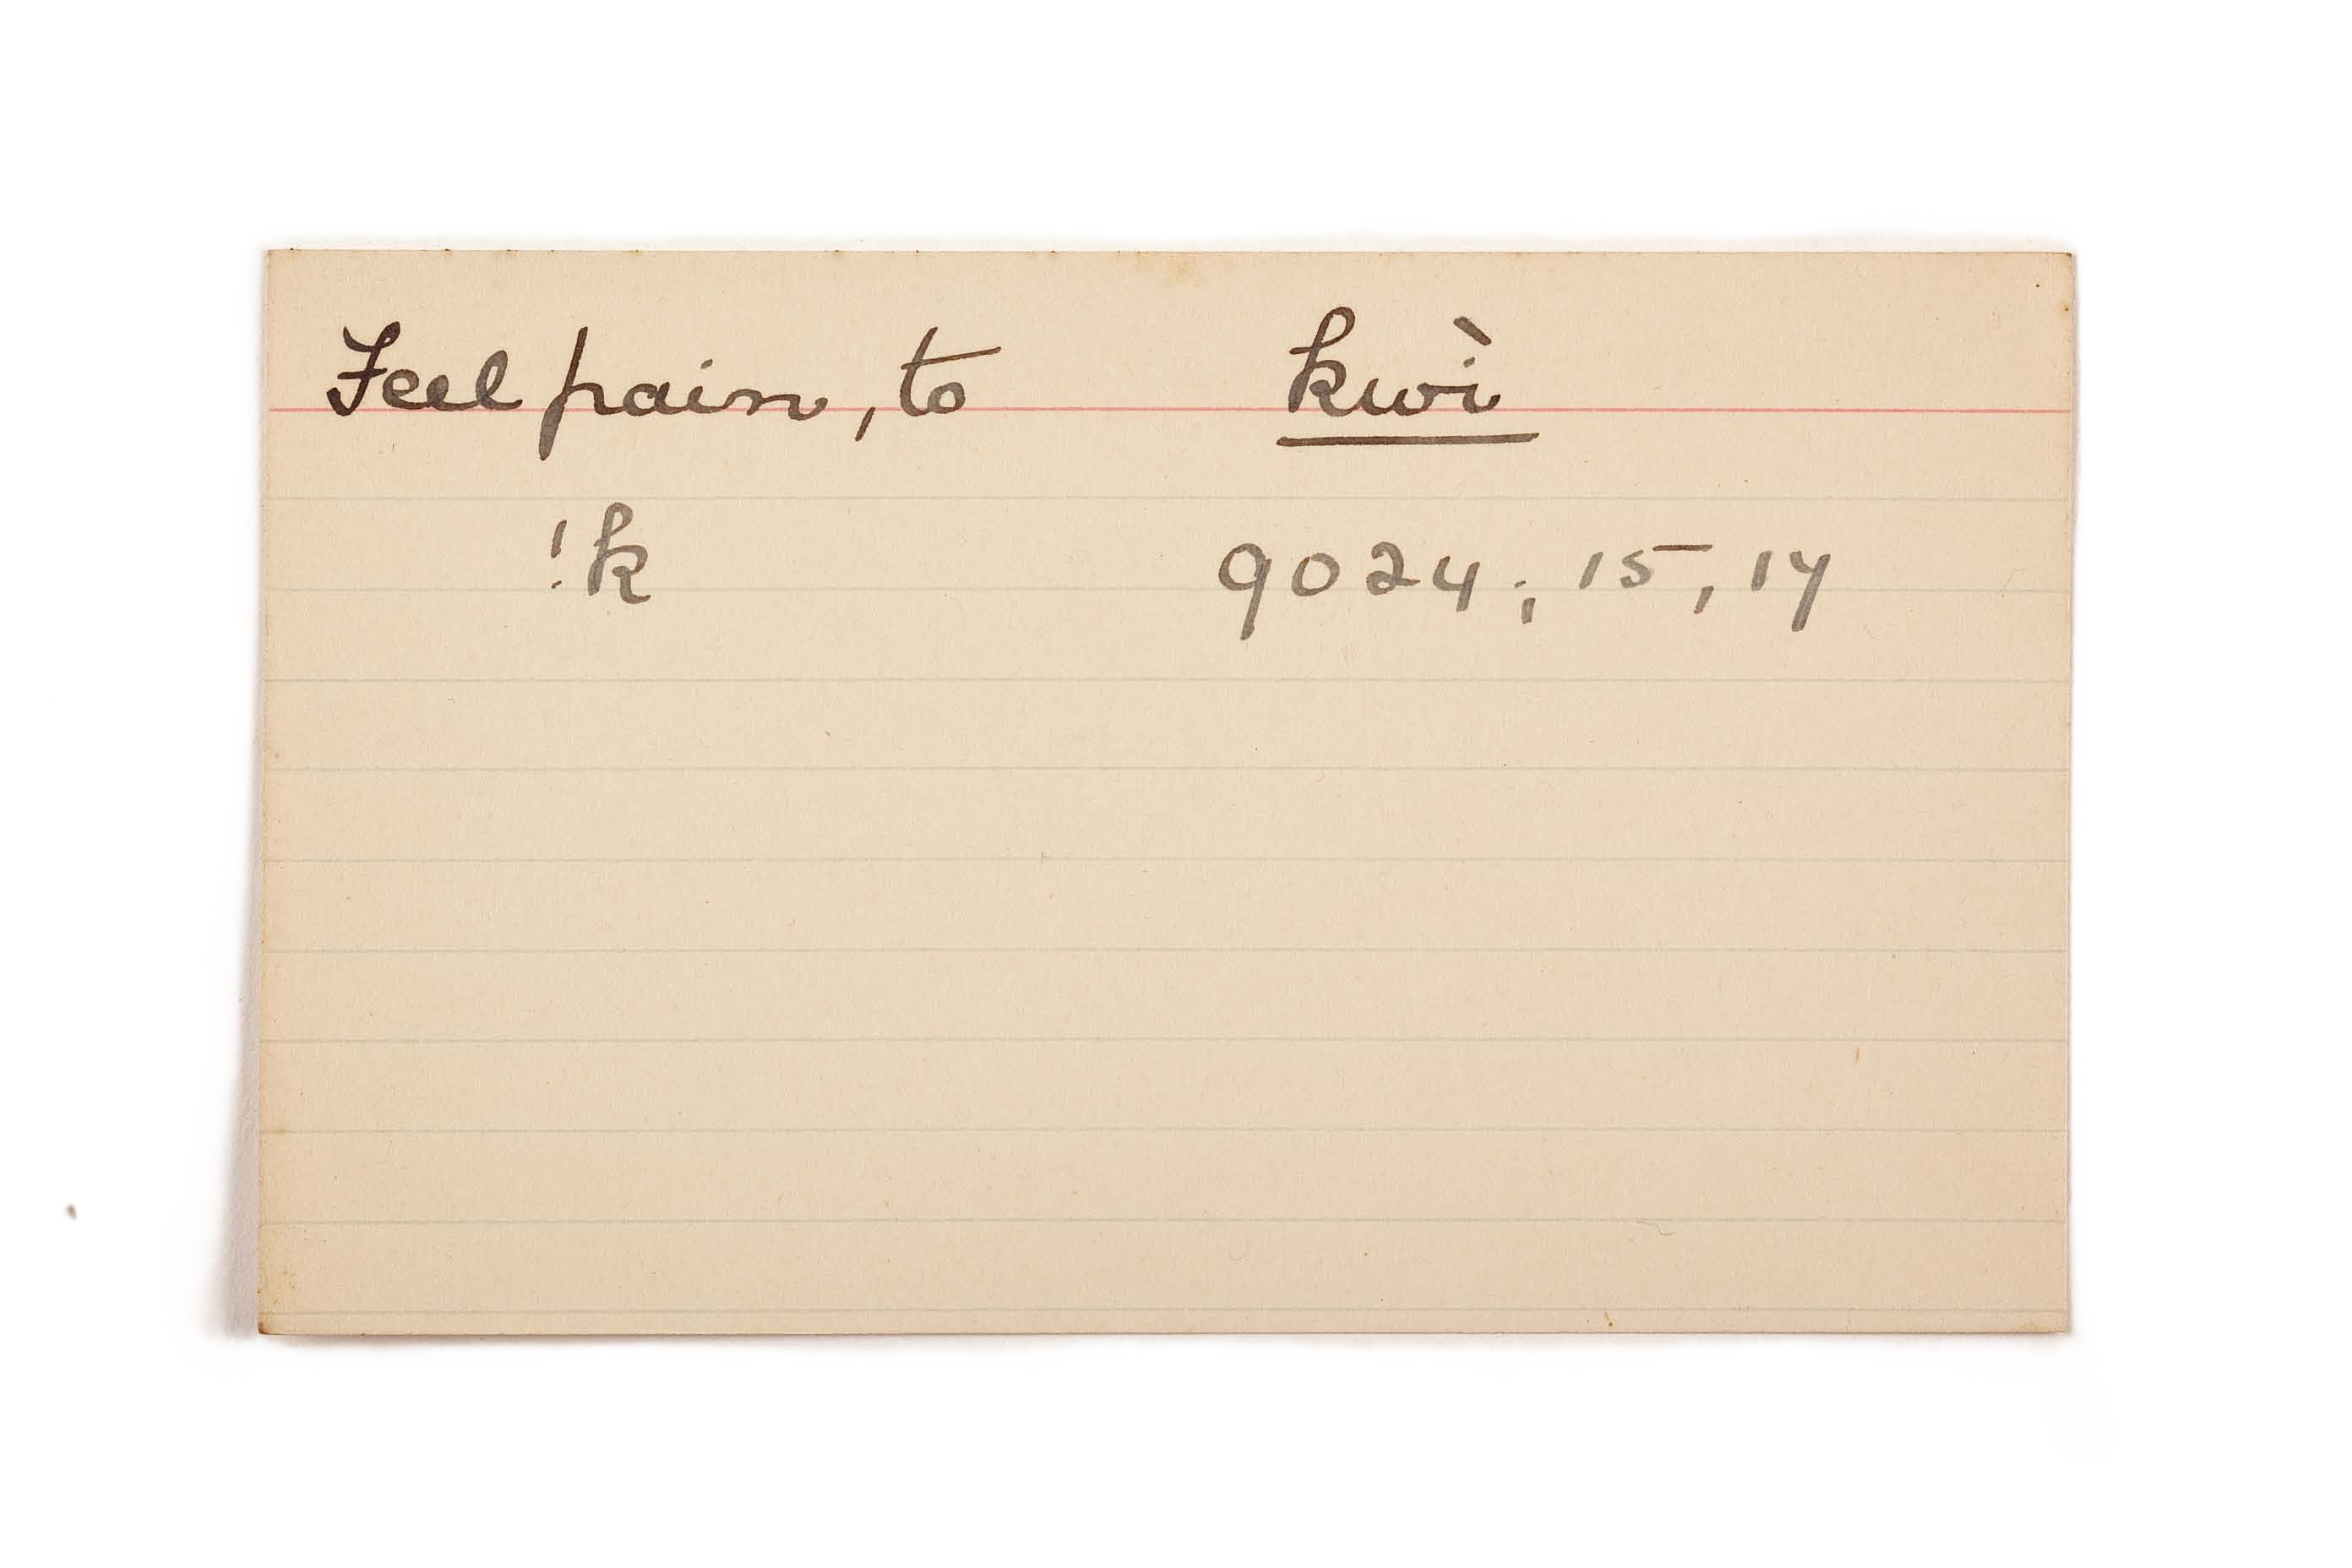 Feel pain, to kwì
!k 9024; 15, 17